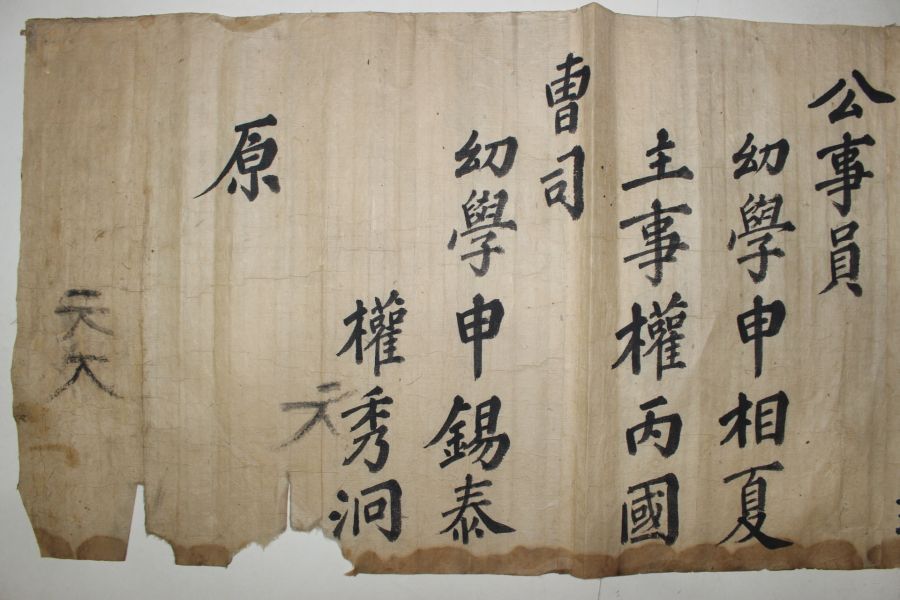 公事員
幼學申相夏
主事權丙國
曺司
幼學申錫泰
權秀泂
原